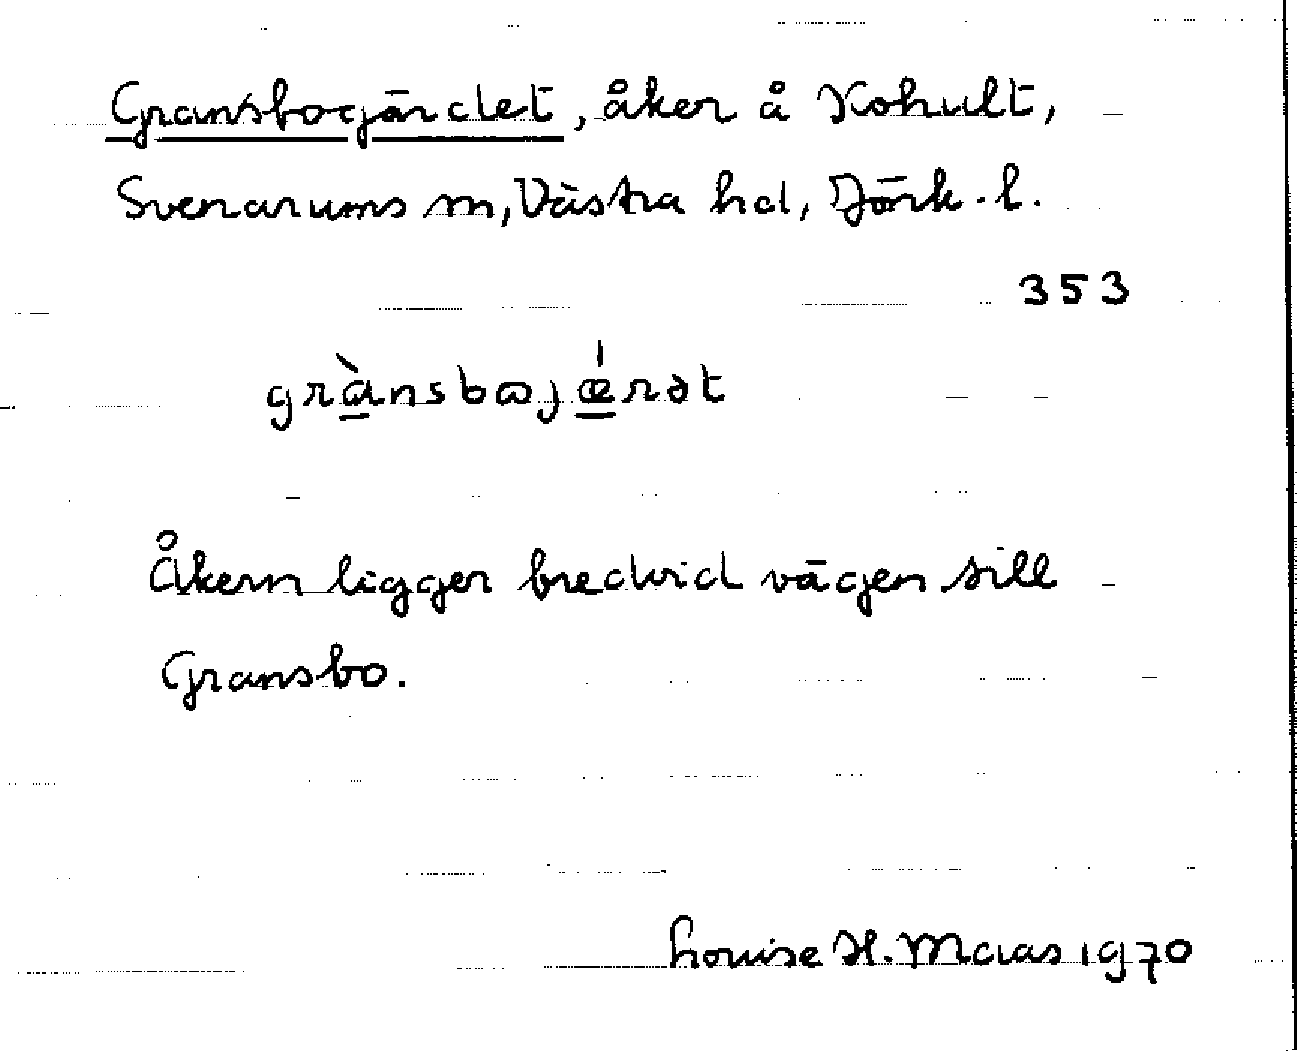 Gransbogärdet, åker å Kohult,
Svenarums sn, Västra hd, Jönk. l.
353
grànsbωjǽrət
Åkern ligger bredvid vägen till
Gransbo.
Louise H. Maas 1970